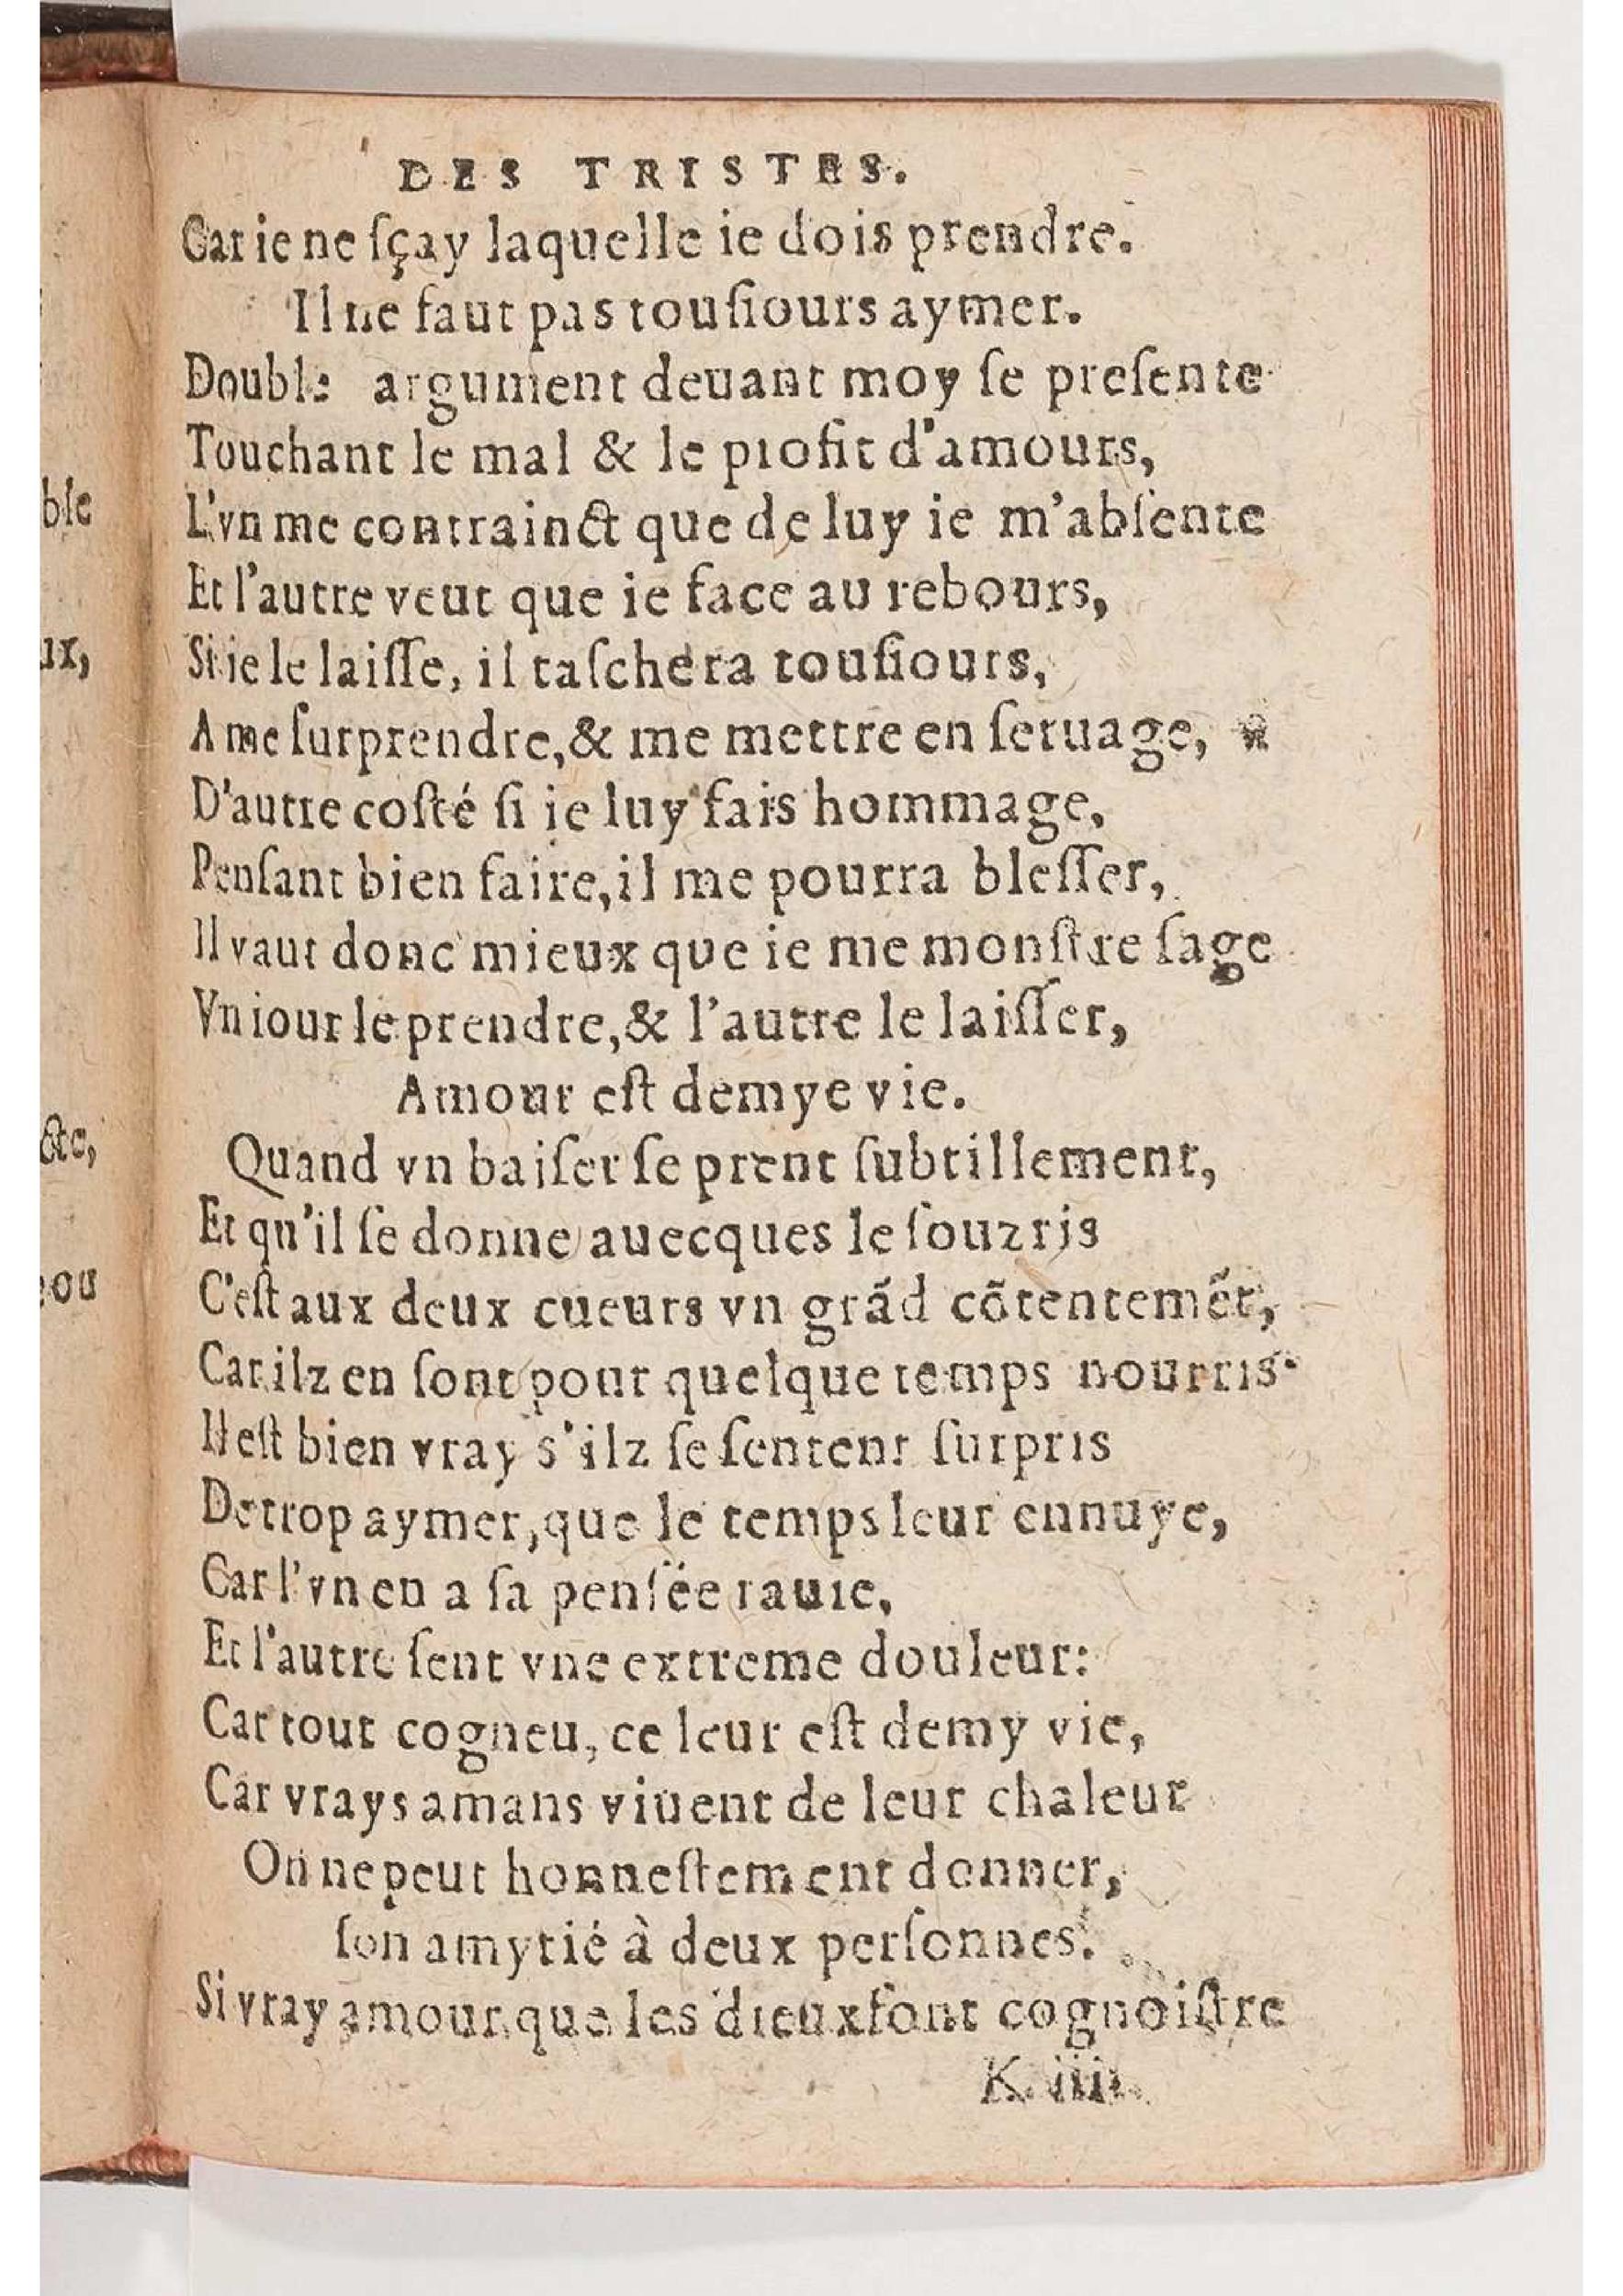 DES TRISTES.
Car ie ne ſçay laquelle ie dois prendre.
Il ne faut pas touſiours aymer.
Double argument deuant moy ſe preſente
Touchant le mal & le profit d'amours,
L'vn me contrainct que de luy ie m'abſente
Et l'autre veut que ie face au rebours,
Si ie le laiſſe, il taſchera touſiours,
A me ſurprendre, & me mettre en ſeruage,
D'autre coſté ſi ie luy fais hommage,
Penſant bien faire, il me pourra bleſſer,
Il vaut donc mieux que ie me monſtre ſage
Vn iour le prendre, & l'autre le laiſſer,
Amour eſt demye vie.
Quand vn baiſer ſe prent ſubtillement,
Et qu'il ſe donne auecques le ſouzris
C'eſt aux deux cueurs vn grãd cõtentemẽt,
Car ilz en ſont pour quelque temps nourris.
Il eſt bien vray s'ilz ſe ſentent ſurpris
De trop aymer, que le temps leur ennuye,
Car l'vn en a ſa penſée rauie,
Et l'autre ſent vne extreme douleur:
Car tout cogneu, ce leur eſt demy vie,
Car vrays amans viuent de leur chaleur
On ne peut honneſtement donner,
ſon amytié à deux perſonnes.
Si vray amour que les dieux font cognoiſtre
K. iiii.
ble
ux,
cte,
ou